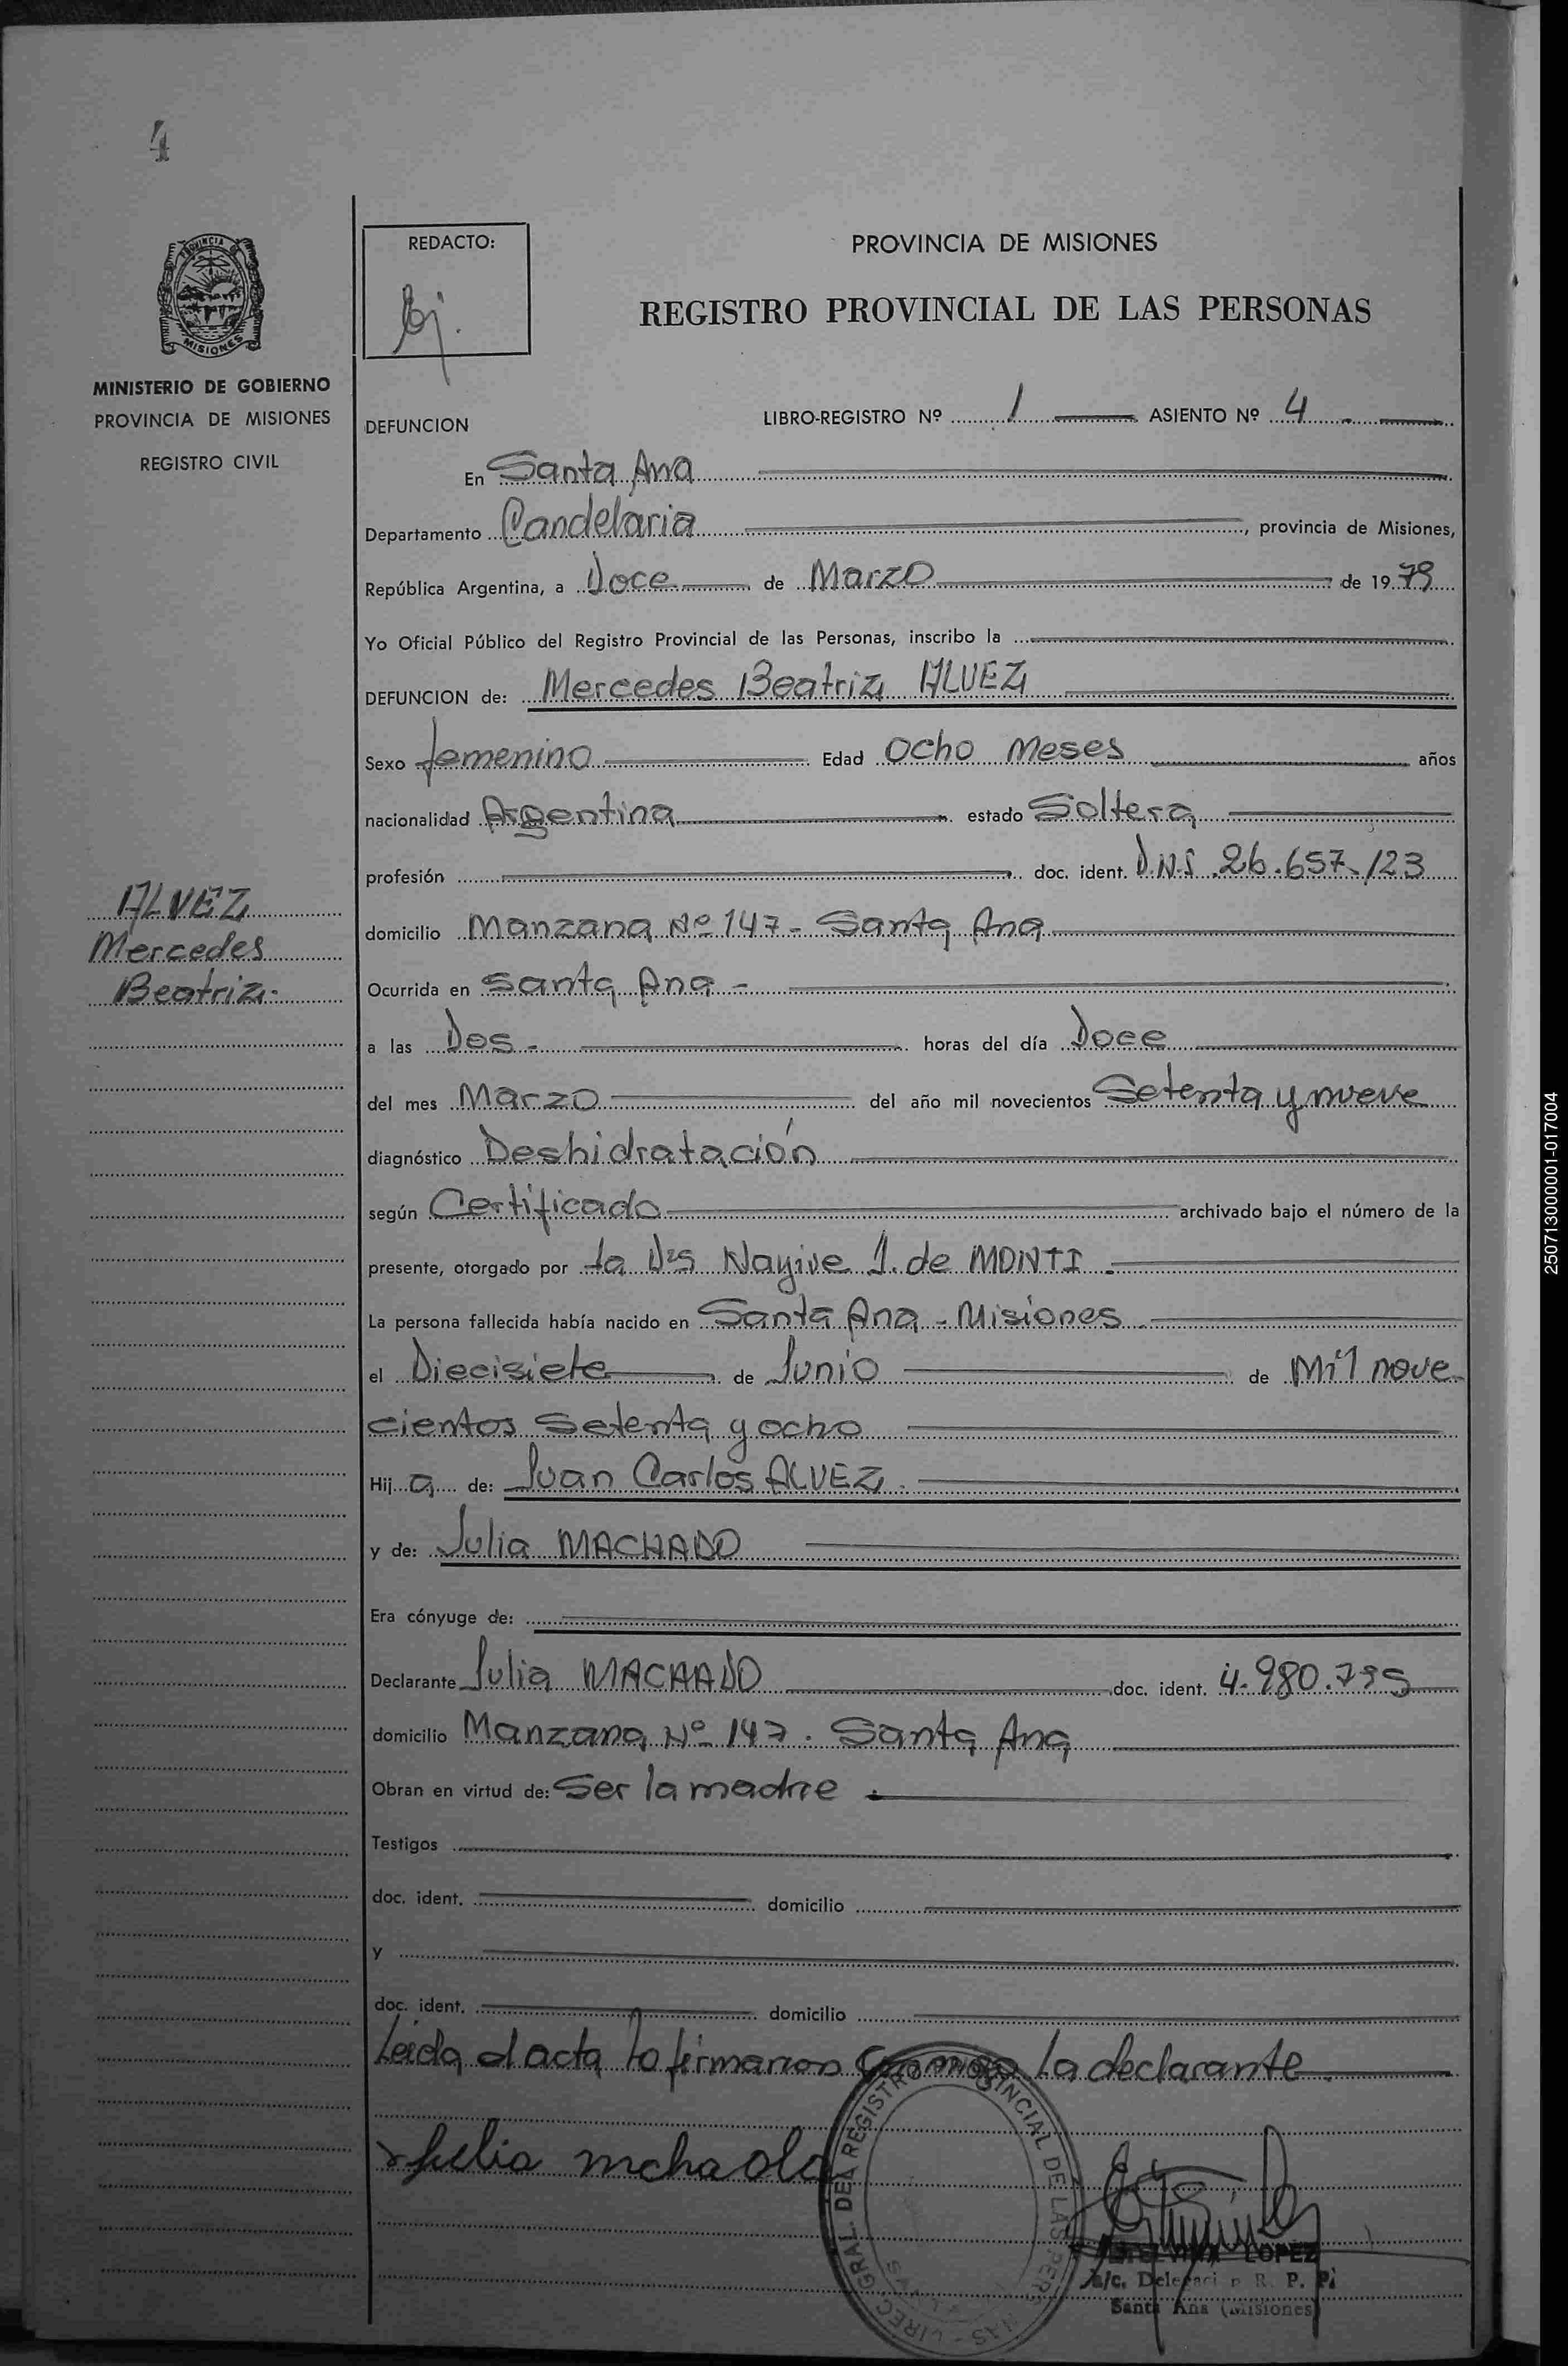 4
PROVINCIA DE
MISIONES
MINISTERIO DE GOBIERNO
PROVINCIA DE MISIONES
REGISTRO CIVIL
REDACTO:
PROVINCIA DE MISIONES
REGISTRO PROVINCIAL DE LAS PERSONAS
DEFUNCION LIBRO-REGISTRO Nº 1 ASIENTO Nº 4
En Santa Ana
Departamento Candelaria, provincia de Misiones,
República Argentina, a Doce de Marzo de 1979
Yo Oficial Público del Registro Provincial de las Personas, inscribo la
DEFUNCION de: Mercedes Beatriz ALVEZ
Sexo femenino Edad ocho meses años
nacionalidad Argentina estado Soltera
profesión doc. ident. D.N.I. 26.657.123
ALVEZ
Mercedes
Beatriz.
domicilio Manzana Nº 147 - Santa Ana
Ocurrida en Santa Ana -
a las Dos - horas del día Doce
del mes Marzo del año mil novecientos Setenta y nueve
diagnóstico Deshidratación
según Certificado archivado bajo el número de la
presente, otorgado por la Nayive J. de MONTI.
La persona fallecida había nacido en Santa Ana - Misiones
el Diecisiete de Junio de Mil nove-
cientos Setenta y ocho
Hija de: Juan Carlos ALVEZ.
y de: Julia MACHADO
Era cónyuge de:
Declarante Julia MACHADO doc. ident. 4.980.795
domicilio Manzana Nº 147. Santa Ana
Obran en virtud de: Ser la madre.
Testigos
doc. ident. domicilio
y
doc. ident. domicilio
Leida el acta la firmamos conmigo la declarante.
Julia mchado
DIREC. GRAL. DEL REGISTRO PROVINCIAL DE LAS PER
LOPEZ
a/c. Delegaci R. P. P.
Santa Ana (Misiones)
250713000001-017004